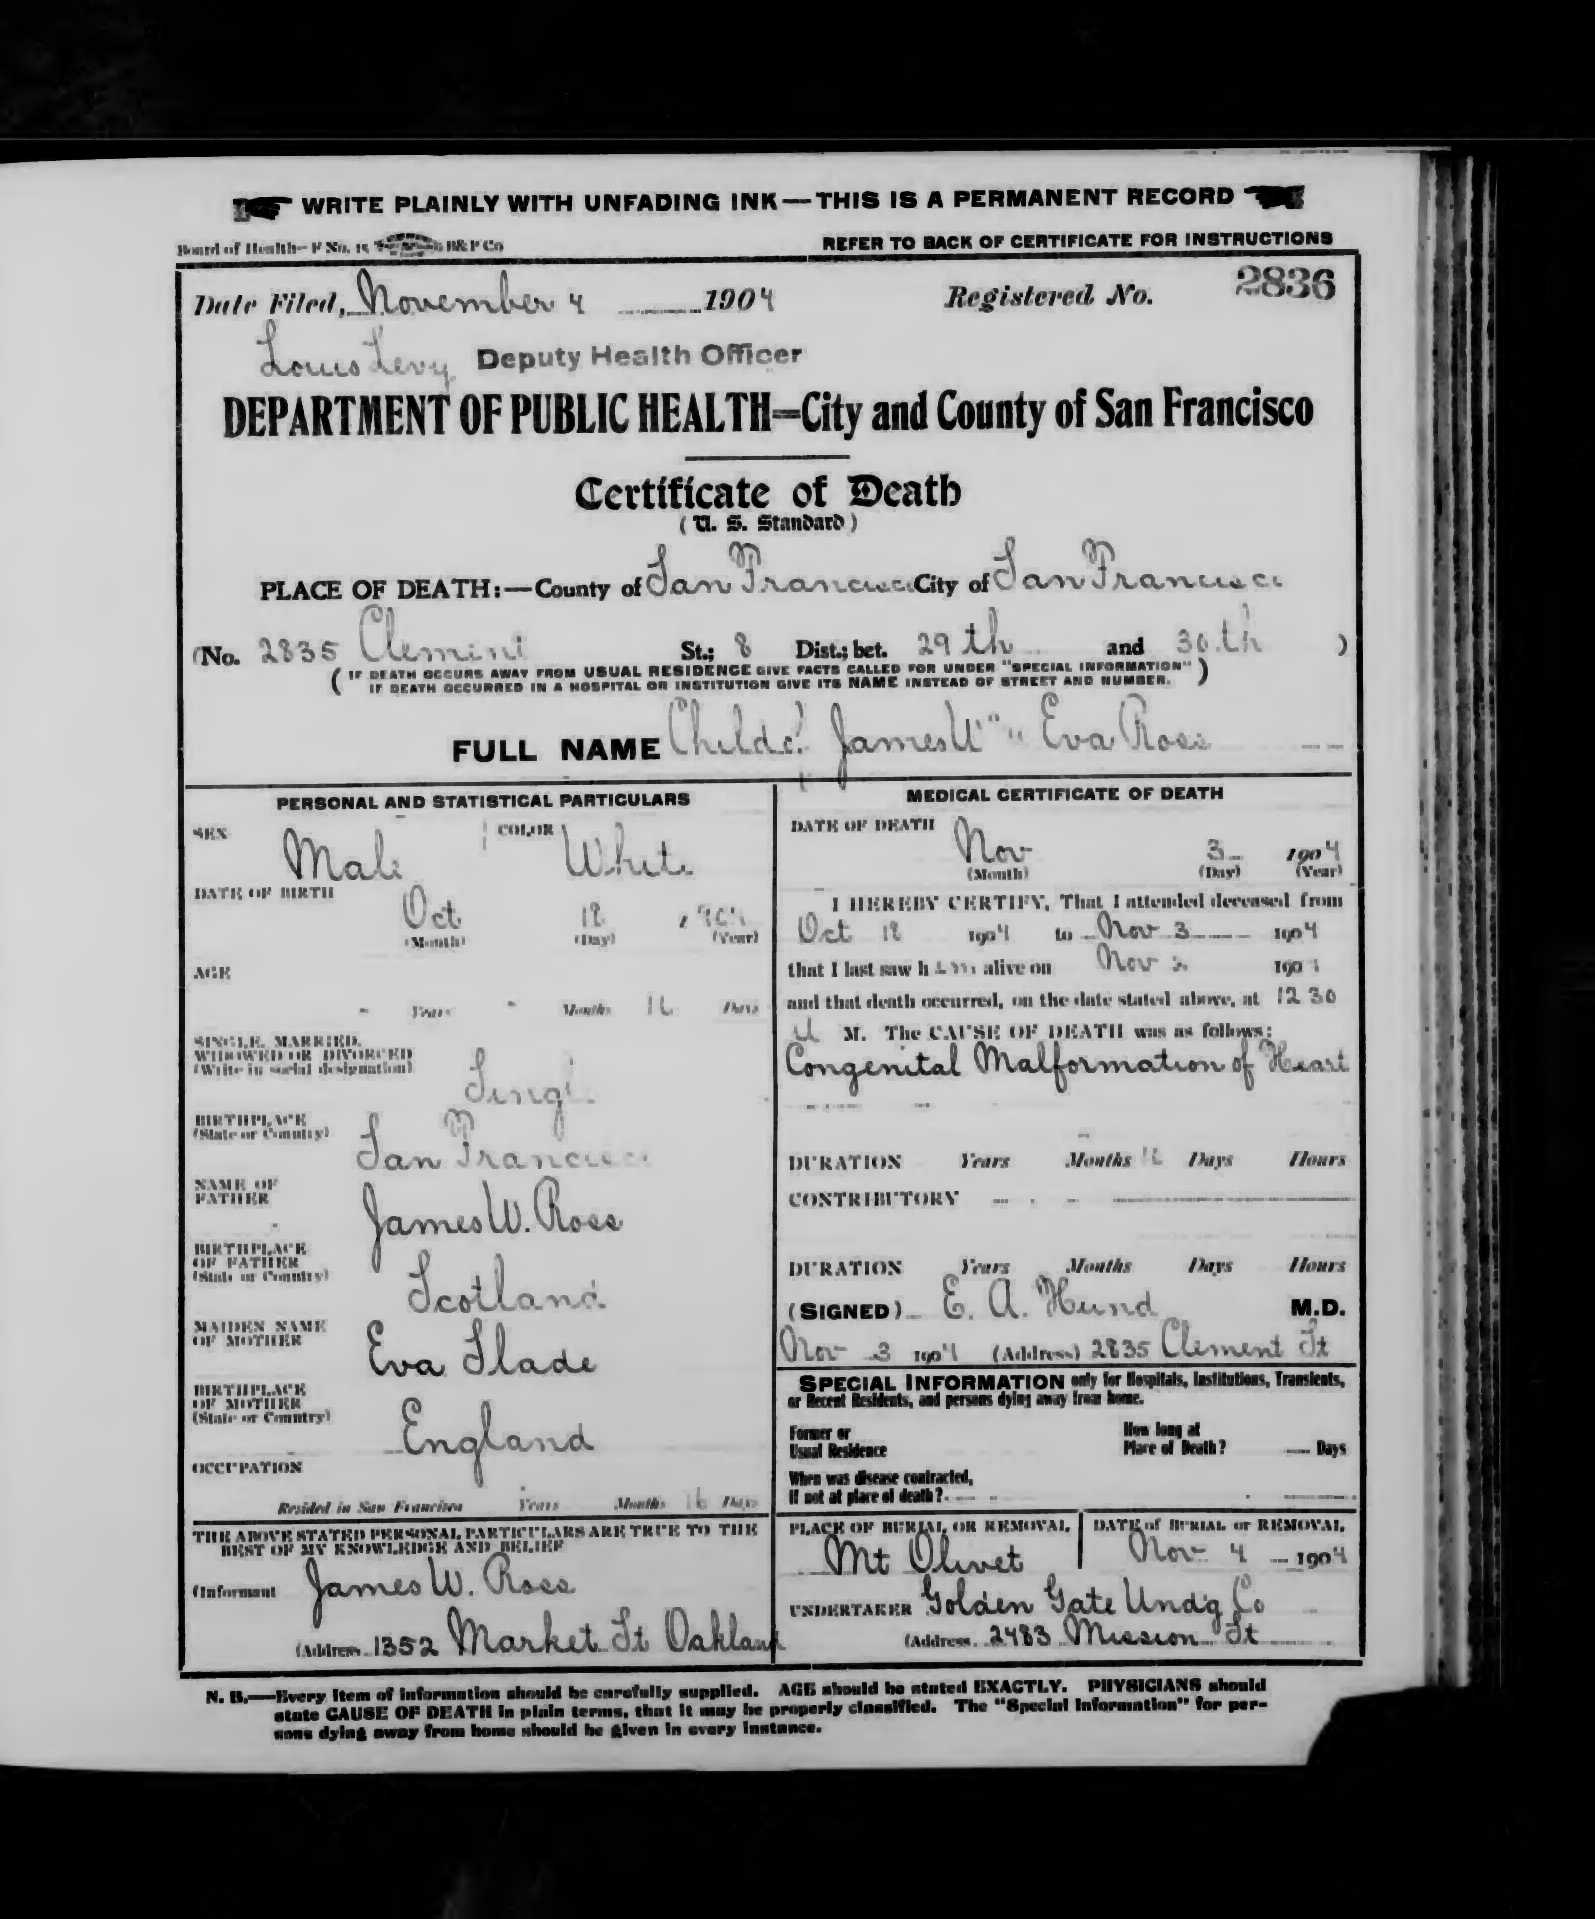 WRITE PLAINLY WITH UNFADING INK—THIS IS A PERMANENT RECORD
Board of Health—F No. 15 B&P Co REFER TO BACK OF CERTIFICATE FOR INSTRUCTIONS
Date Filed, November 4 1904 Registered No. 2836
Louis Levy Deputy Health Officer
DEPARTMENT OF PUBLIC HEALTH=City and County of San Francisco
Certificate of Death
(U. S. Standard)
PLACE OF DEATH:—County of San Francisco City of San Francisco
(No. 2835 Clement St.; 8 Dist.; bet. 29th and 30th )
( IF DEATH OCCURS AWAY FROM USUAL RESIDENCE GIVE FACTS CALLED FOR UNDER "SPECIAL INFORMATION" )
IF DEATH OCCURRED IN A HOSPITAL OR INSTITUTION GIVE ITS NAME INSTEAD OF STREET AND NUMBER.
FULL NAME Child of James W Eva Ross
PERSONAL AND STATISTICAL PARTICULARS
SEX Male COLOR White
DATE OF BIRTH
Oct 18 1904
(Month) (Day) (Year)
AGE
Years Months 16 Days
SINGLE, MARRIED,
WIDOWED OR DIVORCED
(Write in social designation)
Single
BIRTHPLACE
(State or Country)
San Francisco
NAME OF
FATHER
James W. Ross
BIRTHPLACE
OF FATHER
(State or Country)
Scotland
MAIDEN NAME
OF MOTHER
Eva Slade
BIRTHPLACE
OF MOTHER
(State or Country)
England
OCCUPATION
Resided in San Francisco Years Months 16 Days
THE ABOVE STATED PERSONAL PARTICULARS ARE TRUE TO THE
BEST OF MY KNOWLEDGE AND BELIEF
(Informant James W. Ross
(Address 1352 Market St Oakland
MEDICAL CERTIFICATE OF DEATH
DATE OF DEATH
Nov 3 1904
(Month) (Day) (Year)
I HEREBY CERTIFY, That I attended deceased from
Oct 18 1904 to Nov 3 1904
that I last saw him alive on Nov 1904
and that death occurred, on the date stated above, at 12 30
M. The CAUSE OF DEATH was as follows:
Congenital Malformation of Heart
DURATION Years Months 16 Days Hours
CONTRIBUTORY
DURATION Years Months Days Hours
(SIGNED) E. A. Hund M.D.
Nov 3 1904 (Address) 2835 Clement St
SPECIAL INFORMATION only for Hospitals, Institutions, Transients,
or Recent Residents, and persons dying away from home.
Former or
Usual Residence
How long at
Place of Death? Days
When was disease contracted,
If not at place of death?
PLACE OF BURIAL OR REMOVAL
Mt Olivet
DATE of BURIAL or REMOVAL
Nov 4 1904
UNDERTAKER Golden Gate Und'g Co
(Address 2483 Mission St
N. B.—Every item of information should be carefully supplied. AGE should be stated EXACTLY. PHYSICIANS should
state CAUSE OF DEATH in plain terms, that it may be properly classified. The "Special Information" for per-
sons dying away from home should be given in every instance.